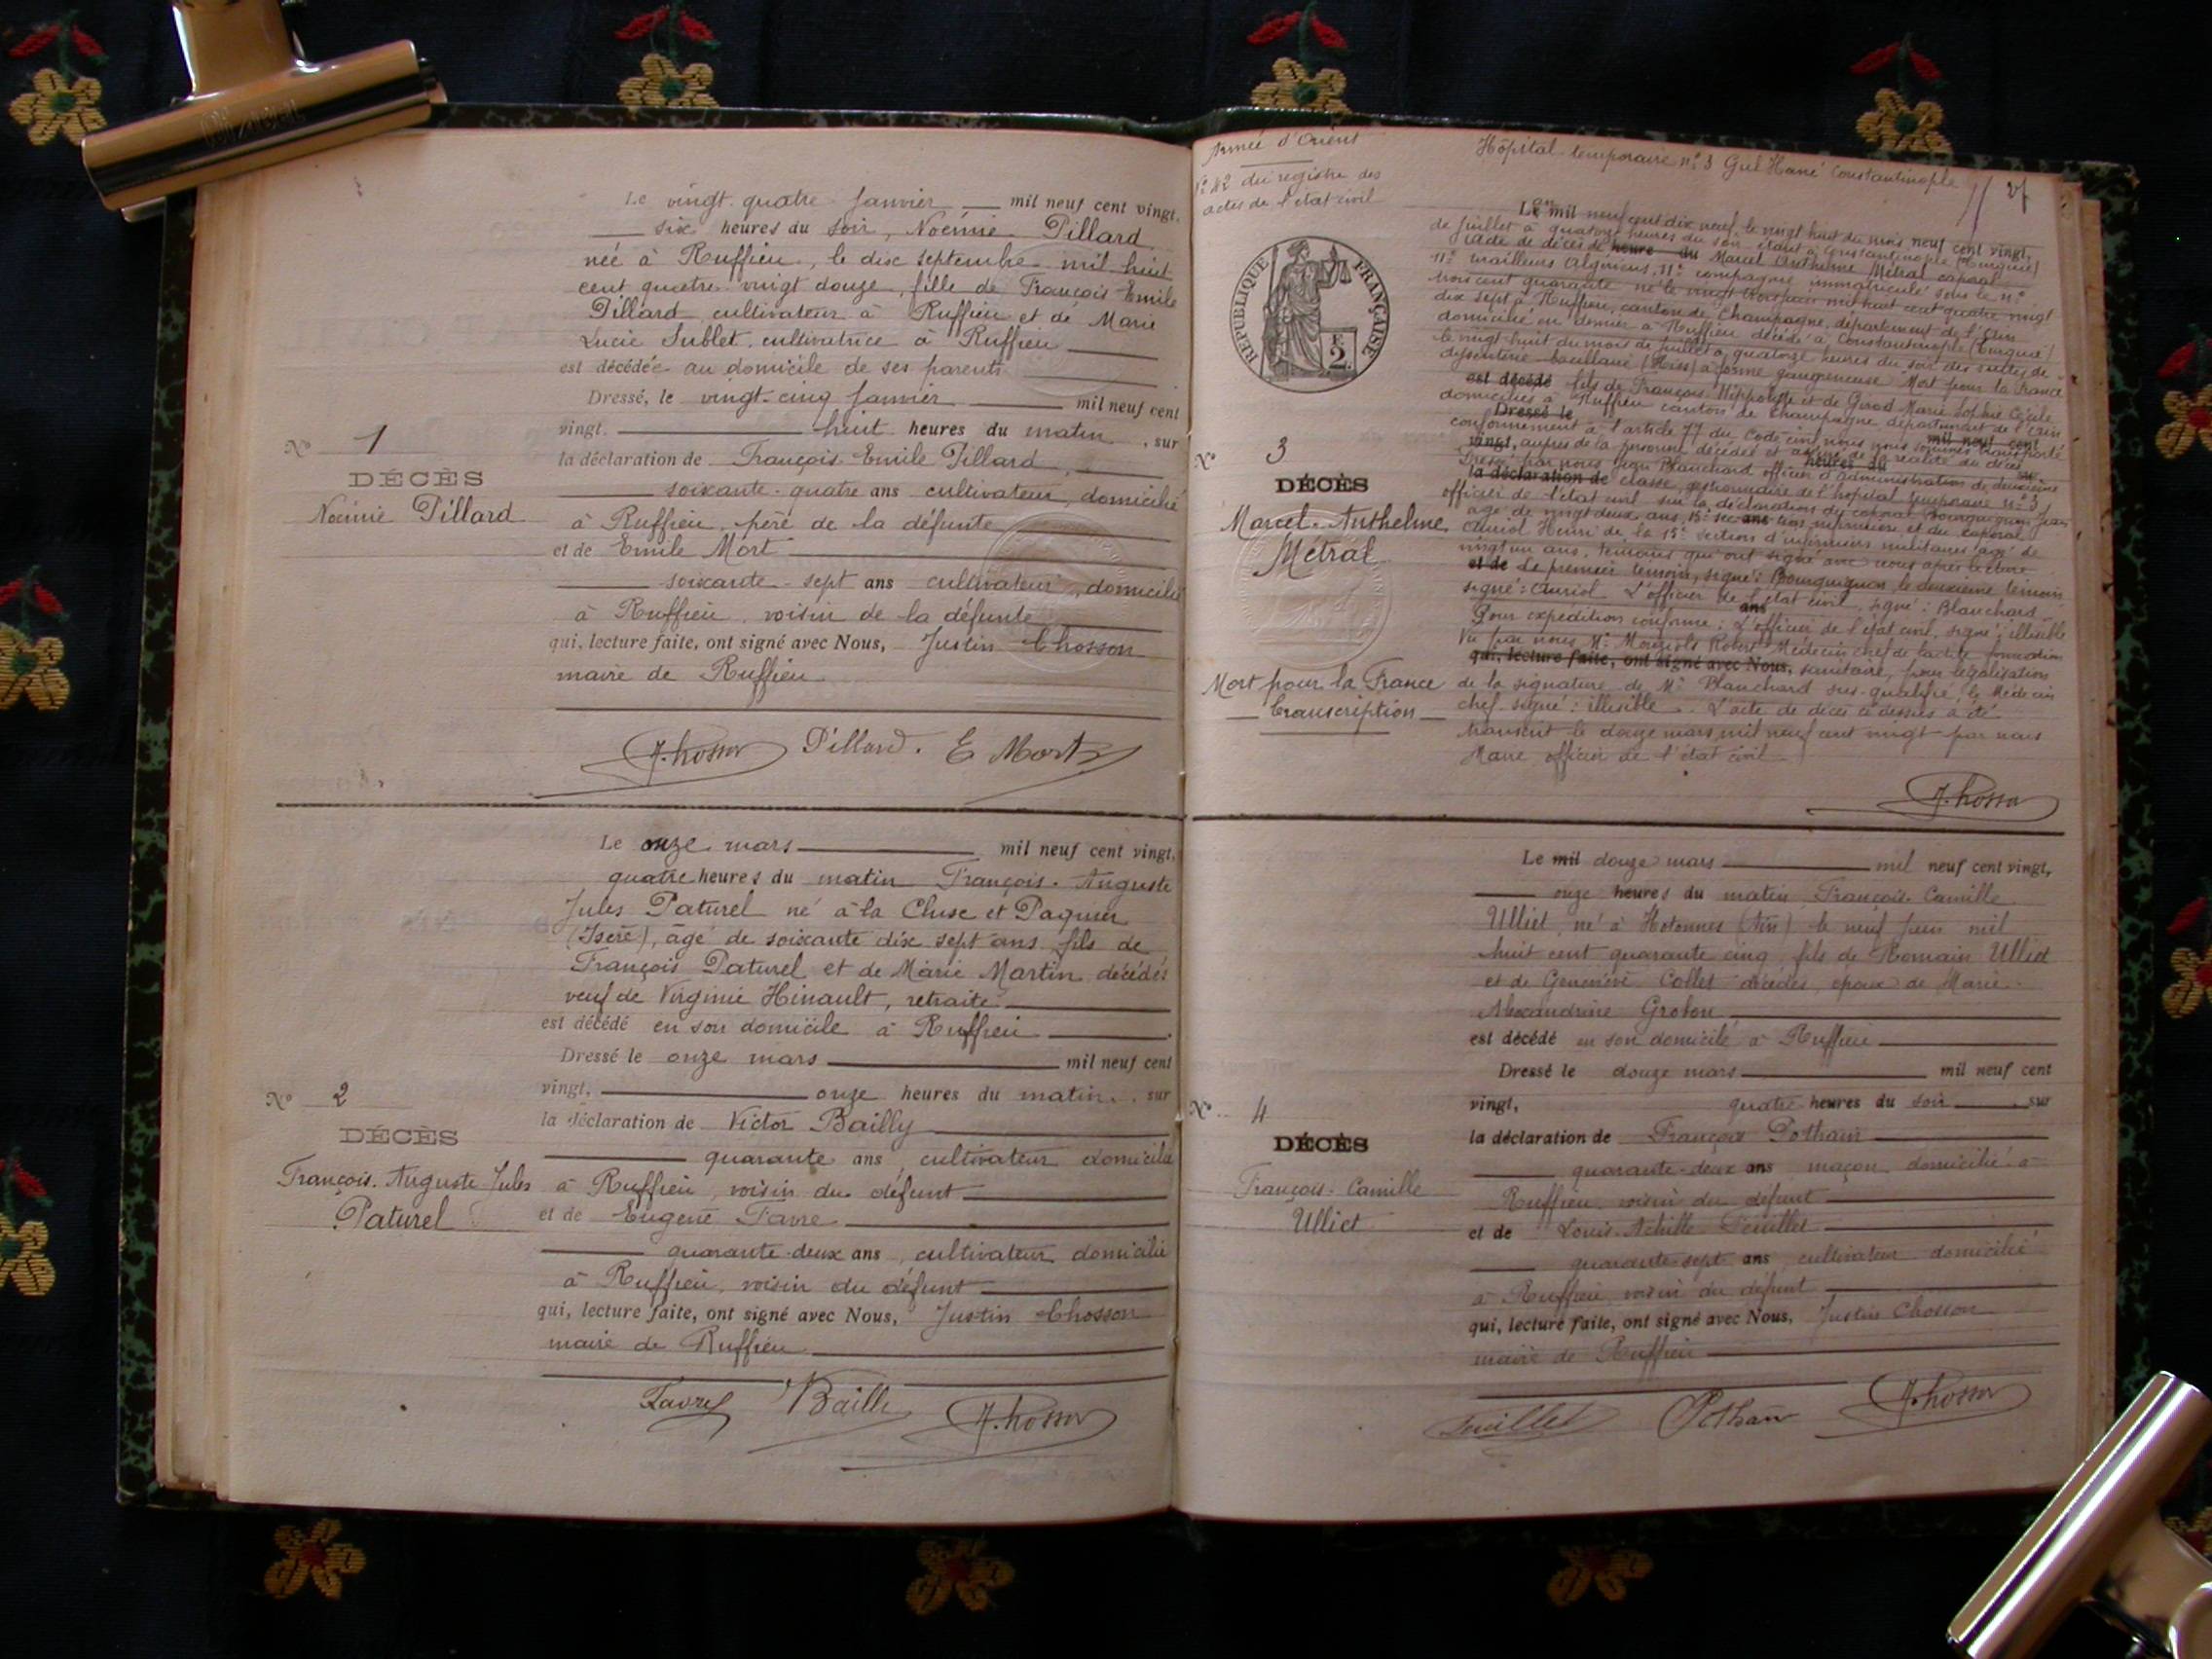 Le vingt-quatre Janvier mil neuf cent vingt,
six heures du soir, Noémie Pillard
née à Ruffieu, le dix septembre mil huit
cent quatre-vingt douze, fille de François Emile
Pillard, cultivateur à Ruffieu et de Marie
Lucie Sublet, cultivatrice à Ruffieu
est décédée au domicile de ses parents
Dressé, le vingt-cinq Janvier mil neuf cent
vingt, huit heures du matin, sur
la déclaration de François Emile Pillard,
soixante-quatre ans cultivateur, domicilié
à Ruffieu, père de la défunte
et de Emile Mort
soixante-sept ans cultivateur, domicilié
à Ruffieu, voisin de la défunte
qui, lecture faite, ont signé avec Nous, Justin Chosson
maire de Ruffieu
J. Chosson Pillard. E Mort
N° 1
DÉCÈS
Noémie Pillard
Le onze mars mil neuf cent vingt,
quatre heures du matin François-Auguste
Jules Paturel né à la Cluse et Paquier
(Isère), âgé de soixante dix sept ans, fils de
François Paturel et de Marie Martin décédés
veuf de Virginie Hinault, retraité
est décédé en son domicile à Ruffieu
Dressé le onze mars mil neuf cent
vingt, onze heures du matin, sur
la déclaration de Victor Bailly
quarante ans, cultivateur domicilié
à Ruffieu, voisin du défunt
et de Eugène Favre
quarante-deux ans, cultivateur domicilié
à Ruffieu, voisin du défunt
qui, lecture faite, ont signé avec Nous, Justin Chosson
maire de Ruffieu
Favre Bailly J. Chosson
N° 2
DÉCÈS
François-Auguste Jules
Paturel
Armée d'Orient
N° 42 du registre des
actes de l'état civil
Hôpital temporaire n° 3 Gul Hané Constantinople
27
RÉPUBLIQUE FRANÇAISE
2
L'an mil neuf cent dix neuf, le vingt huit du mois neuf cent vingt,
de juillet à quatorze heures du soir étant à Constantinople (Turquie)
Acte de décès de heure du Marcel Anthelme Métral caporal
11e tirailleurs Algériens, 11e compagnie immatriculé sous le n°
trois cent quarante né le vingt mil huit cent quatre vingt
dix sept à Ruffieu, canton de Champagne, département de l'Ain
domicilié en dernier à Ruffieu décédé à Constantinople (Turquie)
le vingt-huit du mois de juillet à quatorze heures du soir des suites de
dysenterie bacillaire (Hiss) à forme gangreneuse Mort pour la France
est décédé fils de François Hippolyte et de Girod Marie Sophie Cécile
domiciliés à Ruffieu canton de Champagne département de l'Ain
Dressé le mil neuf cent
conformément à l'article 77 du Code civil nous nous sommes transporté
vingt, auprès de la personne décédée et assuré de la réalité du décès
heures du sur
Dressé par nous Jean Blanchard officier d'administration de deuxième
la déclaration de classe, gestionnaire de l'hôpital temporaire n° 3
officier de l'état civil sur la déclaration du caporal Bourguignon Jean
âgé de vingt deux ans, 15e section ans infirmière et du caporal
Auriol Henri de la 15e section d'infirmiers militaires âgé de
vingt un ans, témoins qui ont signé avec nous après lecture
et de Le premier témoin, signé: Bourguignon le deuxième témoin
signé: Auriol L'officier de l'état civil, signé: Blanchard
ans
Pour expédition conforme: L'officier de l'état civil, signé: illisible
Vu par nous, Mr Robert Médecin chef de ladite formation
qui, lecture faite, ont signé avec Nous, sanitaire, pour légalisation
de la signature de Mr Blanchard sus-qualifié, le Médecin
chef signé: illisible. L'acte de décès ci dessus a été
transcrit le douze mars mil neuf cent vingt par nous
Maire, officier de l'état civil
J. Chosson
N° 3
DÉCÈS
Marcel-Anthelme
Métral
Mort pour la France
Transcription
Le mil douze mars mil neuf cent vingt,
onze heures du matin François-Camille
Ulliet, né à Hotonnes (Ain) le neuf juin mil
huit cent quarante cinq, fils de Romain Ulliet
et de Geneviève Collet décédés, époux de Marie-
Alexandrine Grobon
est décédé en son domicile à Ruffieu
Dressé le douze mars mil neuf cent
vingt, quatre heures du soir, sur
la déclaration de François Pothain
quarante-deux ans maçon domicilié à
Ruffieu, voisin du défunt
et de Louis-Achille
quarante-sept ans, cultivateur domicilié
à Ruffieu, voisin du défunt
qui, lecture faite, ont signé avec Nous, Justin Chosson
maire de Ruffieu
Pothain J. Chosson
N° 4
DÉCÈS
François-Camille
Ulliet